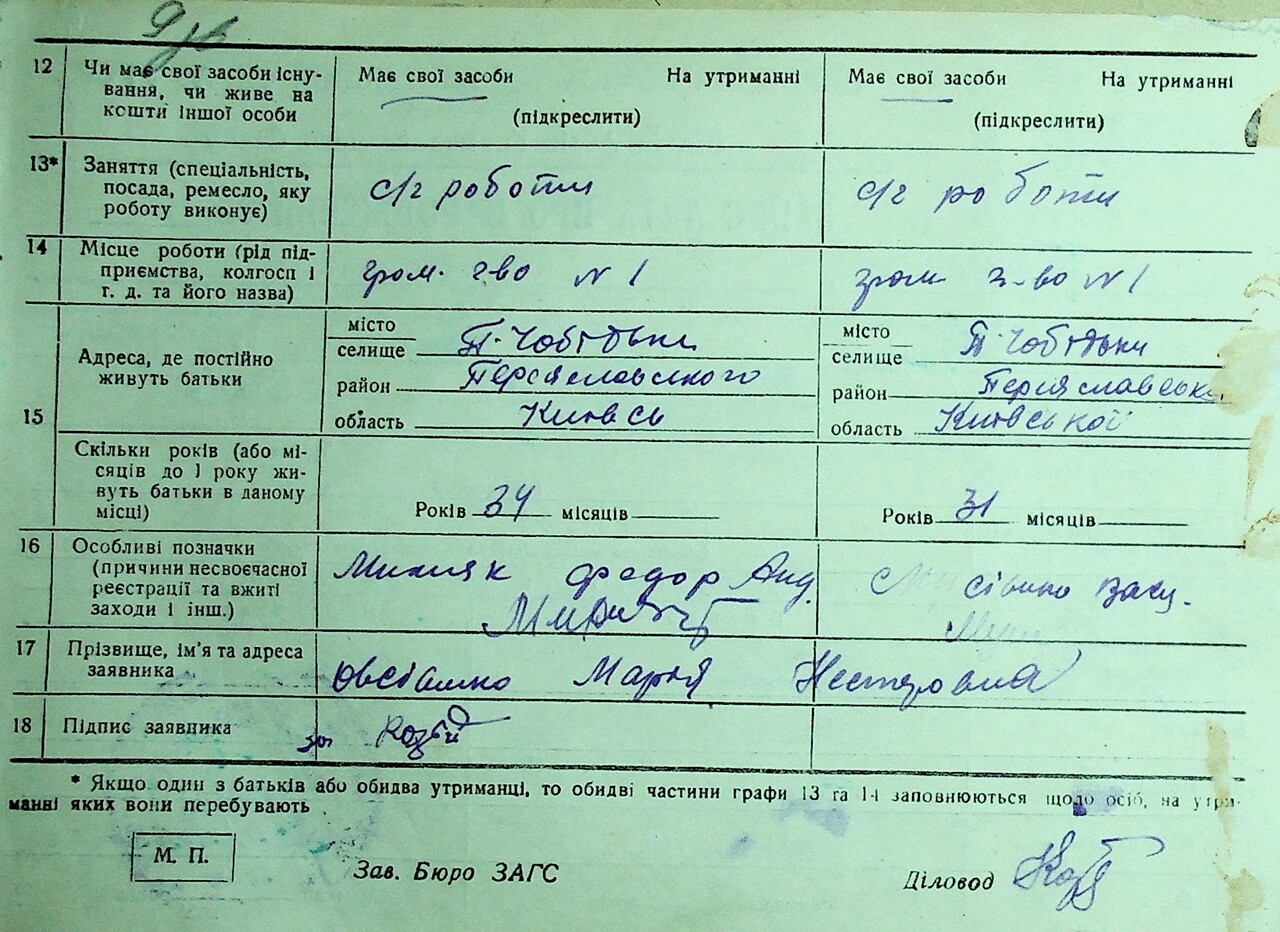 12 Чи має свої засоби існу-
вання, чи живе на
кошти іншої особи
Має свої засоби На утриманні
(підкреслити)
Має свої засоби На утриманні
(підкреслити)
13* Заняття (спеціальність,
посада, ремесло, яку
роботу виконує)
с/г роботи
с/г роботи
14 Місце роботи (рід під-
приємства, колгосп і
г. д. та його назва)
гром. г-во N 1
гром г-во N 1
15
Адреса, де постійно
живуть батьки
місто
селище
район Переяславського
область Київсь
місто
селище
район
область Київської
Скільки років (або мі-
сяців до 1 року жи-
вуть батьки в даному
місці)
Років 34 місяців
Років 31 місяців
16 Особливі позначки
(причини несвоєчасної
реєстрації та вжиті
заходи і інш.)
Федор Анд.
17 Прізвище, ім'я та адреса
заявника
Марія Нестеровна
18 Підпис заявника
за
* Якщо один з батьків або обидва утриманці, то обидві частини графи 13 та 14 заповнюються щодо осіб, на утри-
манні яких вони перебувають
М. П.
Зав. Бюро ЗАГС
Діловод